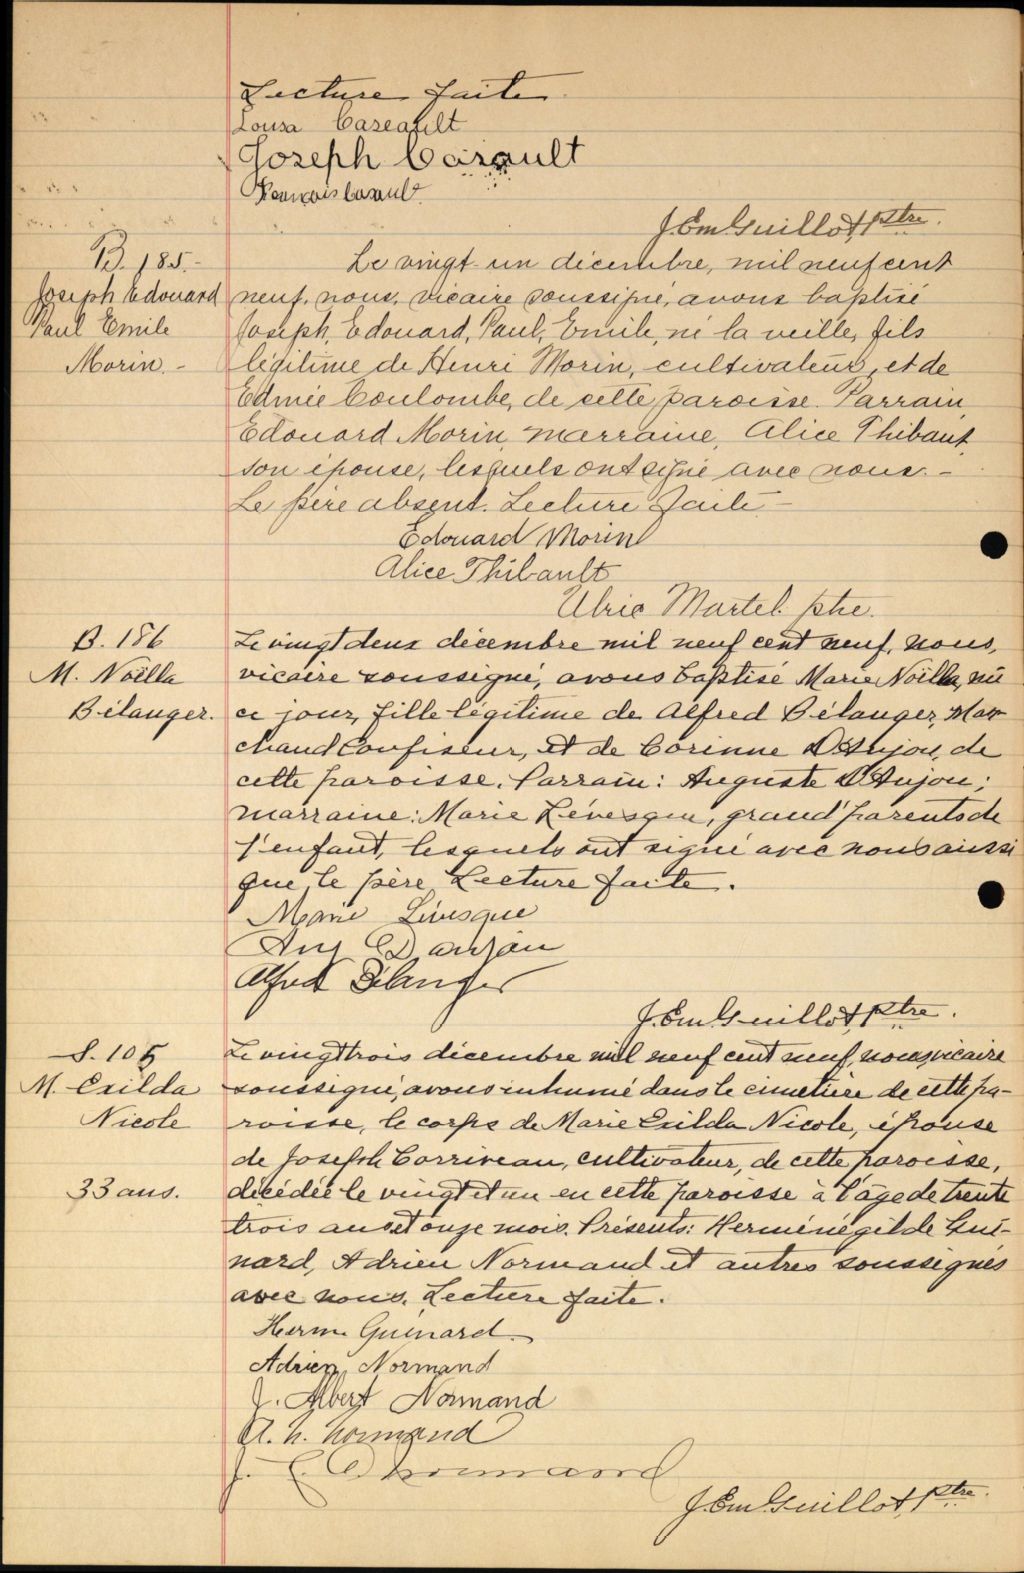 Lecture faite
Lousa Caseault
Joseph Casault
François Casault
J. Em. Guillot, Ptre.
B. 185.-
Joseph Edouard
Paul Emile
Morin.-
Le vingt-un décembre, mil neuf cent
neuf, nous, vicaire soussigné, avons baptisé
Joseph, Edouard, Paul, Emile, né la veille, fils
légitime de Henri Morin, cultivateur, et de
Edmée Coulombe, de cette paroisse. Parrain,
Edouard Morin, marraine, Alice Thibaut,
son épouse, lesquels ont signé avec nous.-
Le père absent. Lecture faite-
Edouard Morin
Alice Thibault
Ulric Martel. ptre.
B. 186
M. Noëlla
Bélanger.
Le vingt deux décembre mil neuf cent neuf, nous,
vicaire soussigné, avons baptisé Marie Noëlla, née
ce jour, fille légitime de Alfred Bélanger, Mar-
chand Confiseur, et de Corinne D'Anjou, de
cette paroisse. Parrain: Auguste D'Anjou;
marraine: Marie Lévesque, grand'parents de
l'enfant, lesquels ont signé avec nous aussi
que le père. Lecture faite.
Marie Lévesque
Aug D'anjou
Alfred Bélanger
J. Em. Guillot, Ptre.
S. 105
M. Exilda
Nicole
33 ans.
Le vingt trois décembre mil neuf cent neuf, nous, vicaire
soussigné, avons inhumé dans le cimetière de cette pa-
roisse, le corps de Marie Exilda Nicole, épouse
de Joseph Corriveau, cultivateur, de cette paroisse,
décédée le vingt et un en cette paroisse à l'âge de trente
trois ans et onze mois. Présents: Herménégilde Gui-
nard, Adrien Normand et autres soussignés
avec nous. Lecture faite.
Herm. Guinard.
Adrien Normand
J. Albert Normand
A. N. Normand
J. E. O Normand
J. Em. Guillot, Ptre.